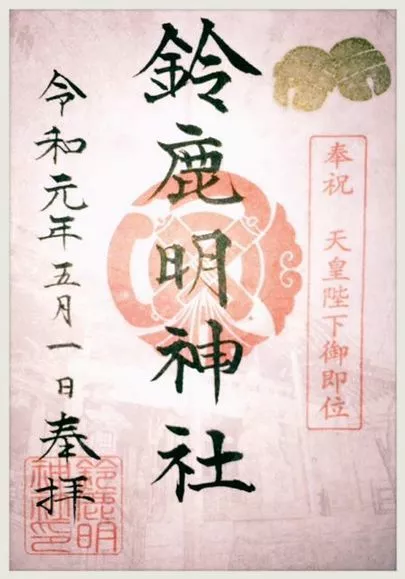 奉祝　天皇陛下御即位
鈴鹿明神社
令和元年五月一日奉拝
鈴鹿明
神社印